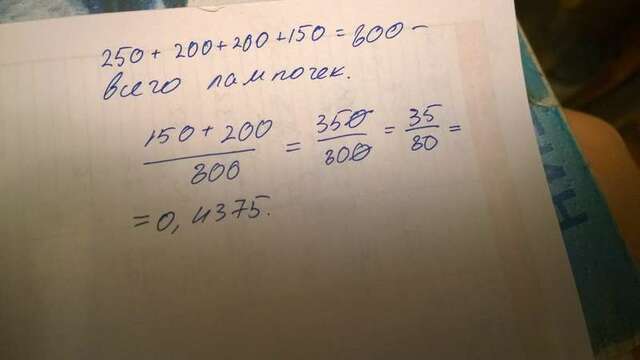 250 + 200 + 200 + 150 = 800 -
всего лампочек.
150 + 200 / 800 = 350 / 800 = 35 / 80 =
= 0,4375.